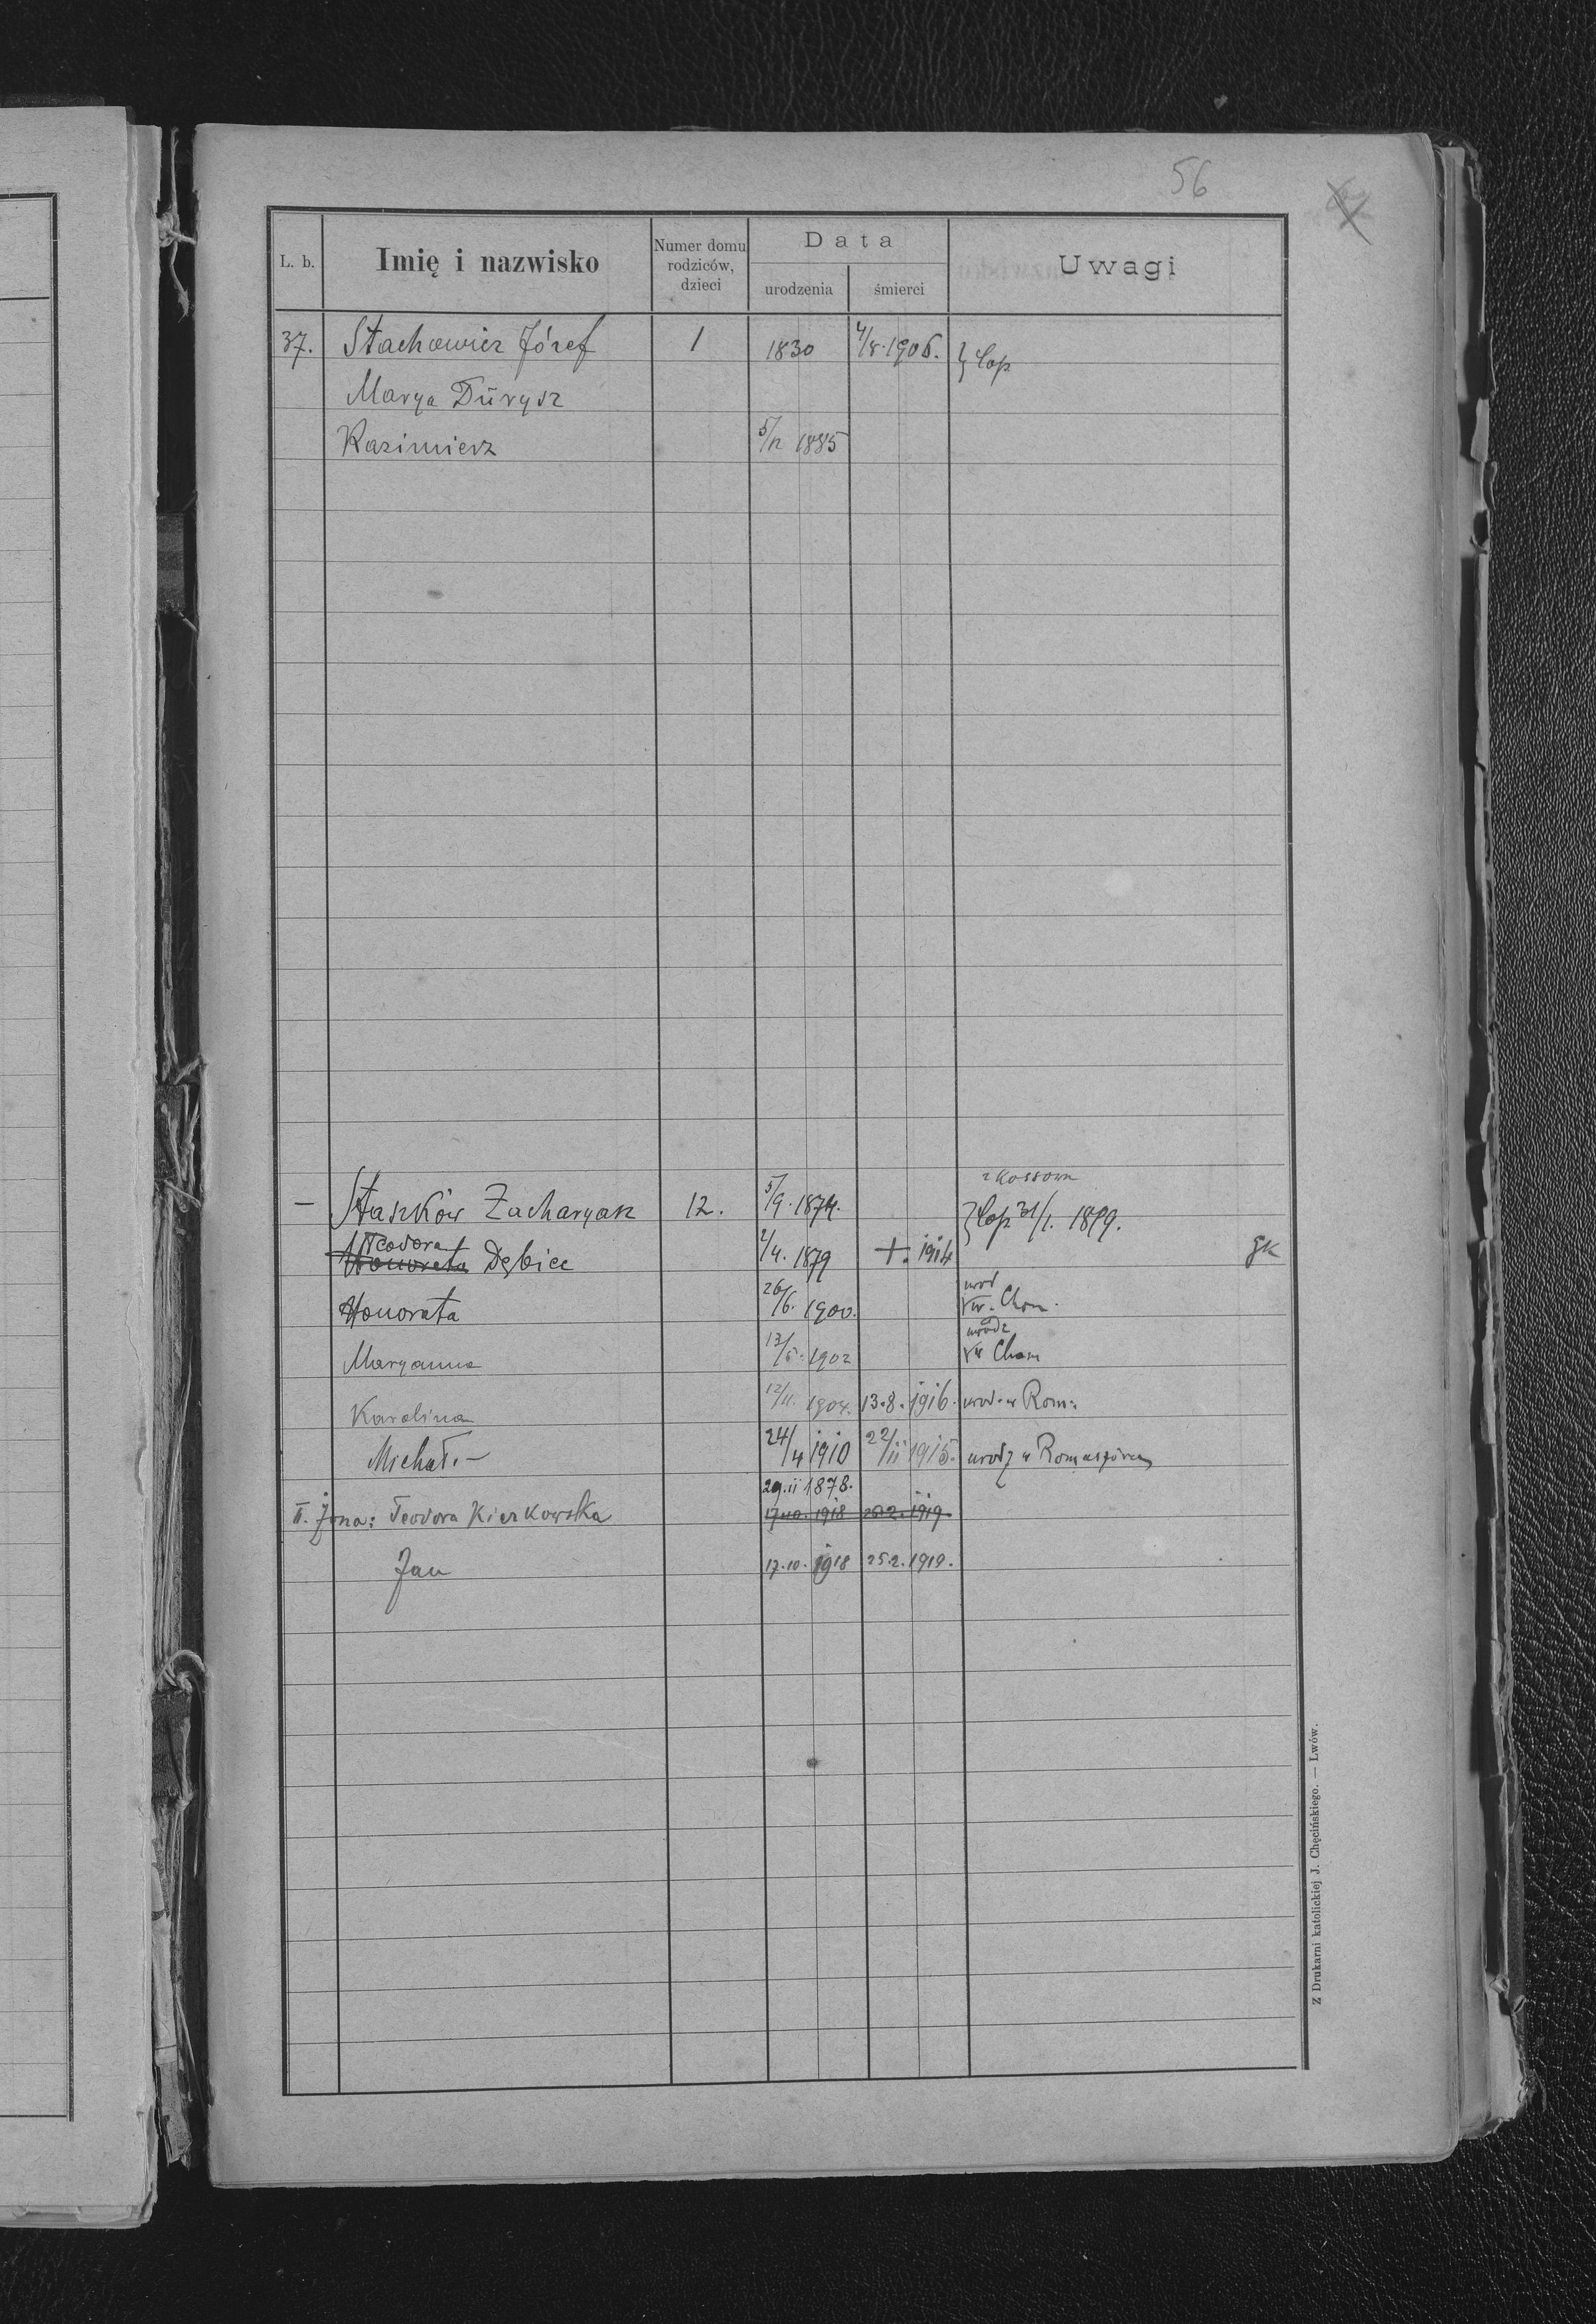 56
L. b.
Imię i nazwisko
Numer domu rodziców, dzieci
Data
urodzenia
śmierci
Uwagi
37. Stachowicz Józef 1 1830 4/8. 1906. cop
Marya Dürysz
Kazimierz 5/12 1885
z Kossow
— Staszków Zacharyasz 12. 5/9. 1874. cop 31/1. 1899.
Teodora
Honorata Dębicc 2/4. 1879 +. 1914 gk
Honorata 26/6. 1900. urod w. Chom.
Maryanna 13/5. 1902 urodz w Chom
Karolina 12/11. 1904. 13.8. 1916. urod. w Rom:
Michał.— 24/4 1910 22/11 1915. urodz w Romaszówce
29.11 1878.
II. żona: Teodora Kierkowska 17.10. 1918 25.2. 1919.
Jan 17.10. 1918 25.2. 1919.
Z Drukarni katolickiej J. Chęcińskiego. — Lwów.